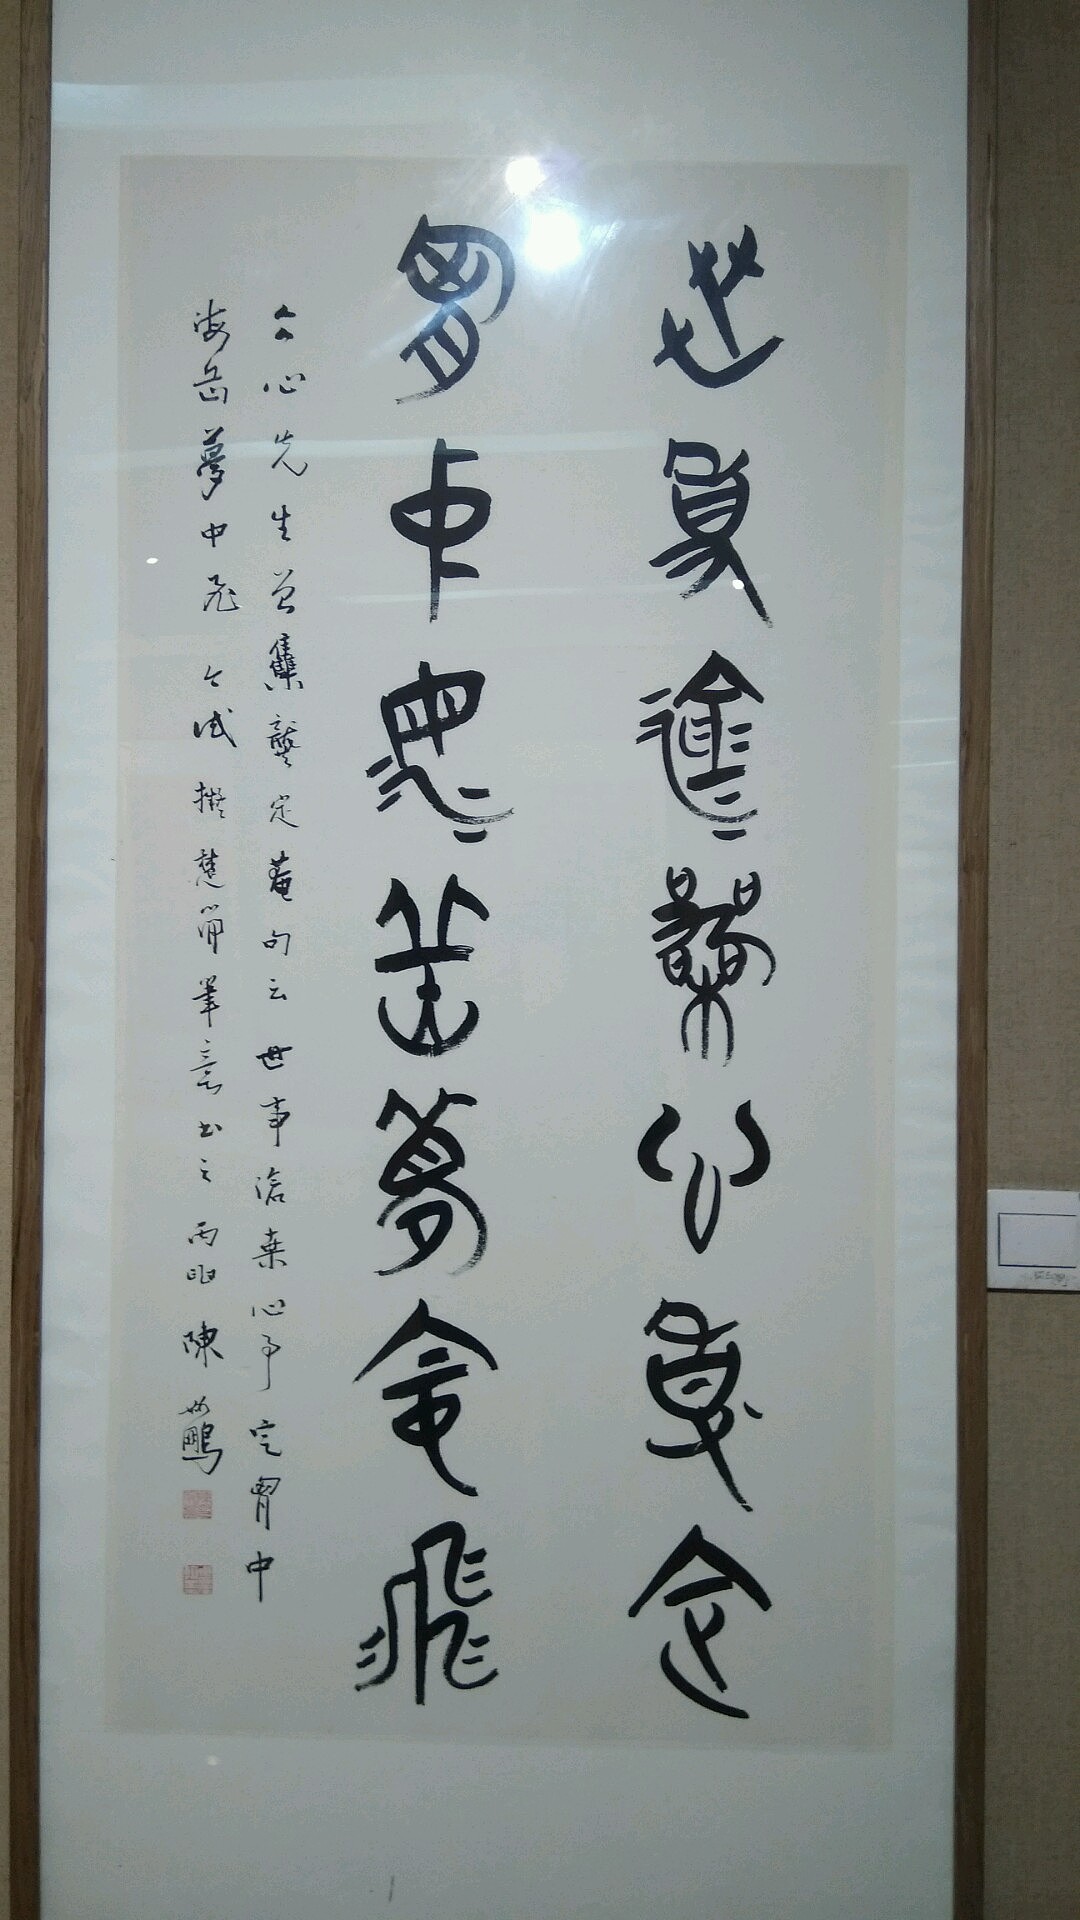 世事滄桑心事定
胷中海岳夢中飛
仌心先生曾集龔定菴句云世事滄桑心事定胷中
海岳夢中飛 今試擬楚簡筆意書之 丙申 陳斯鵬